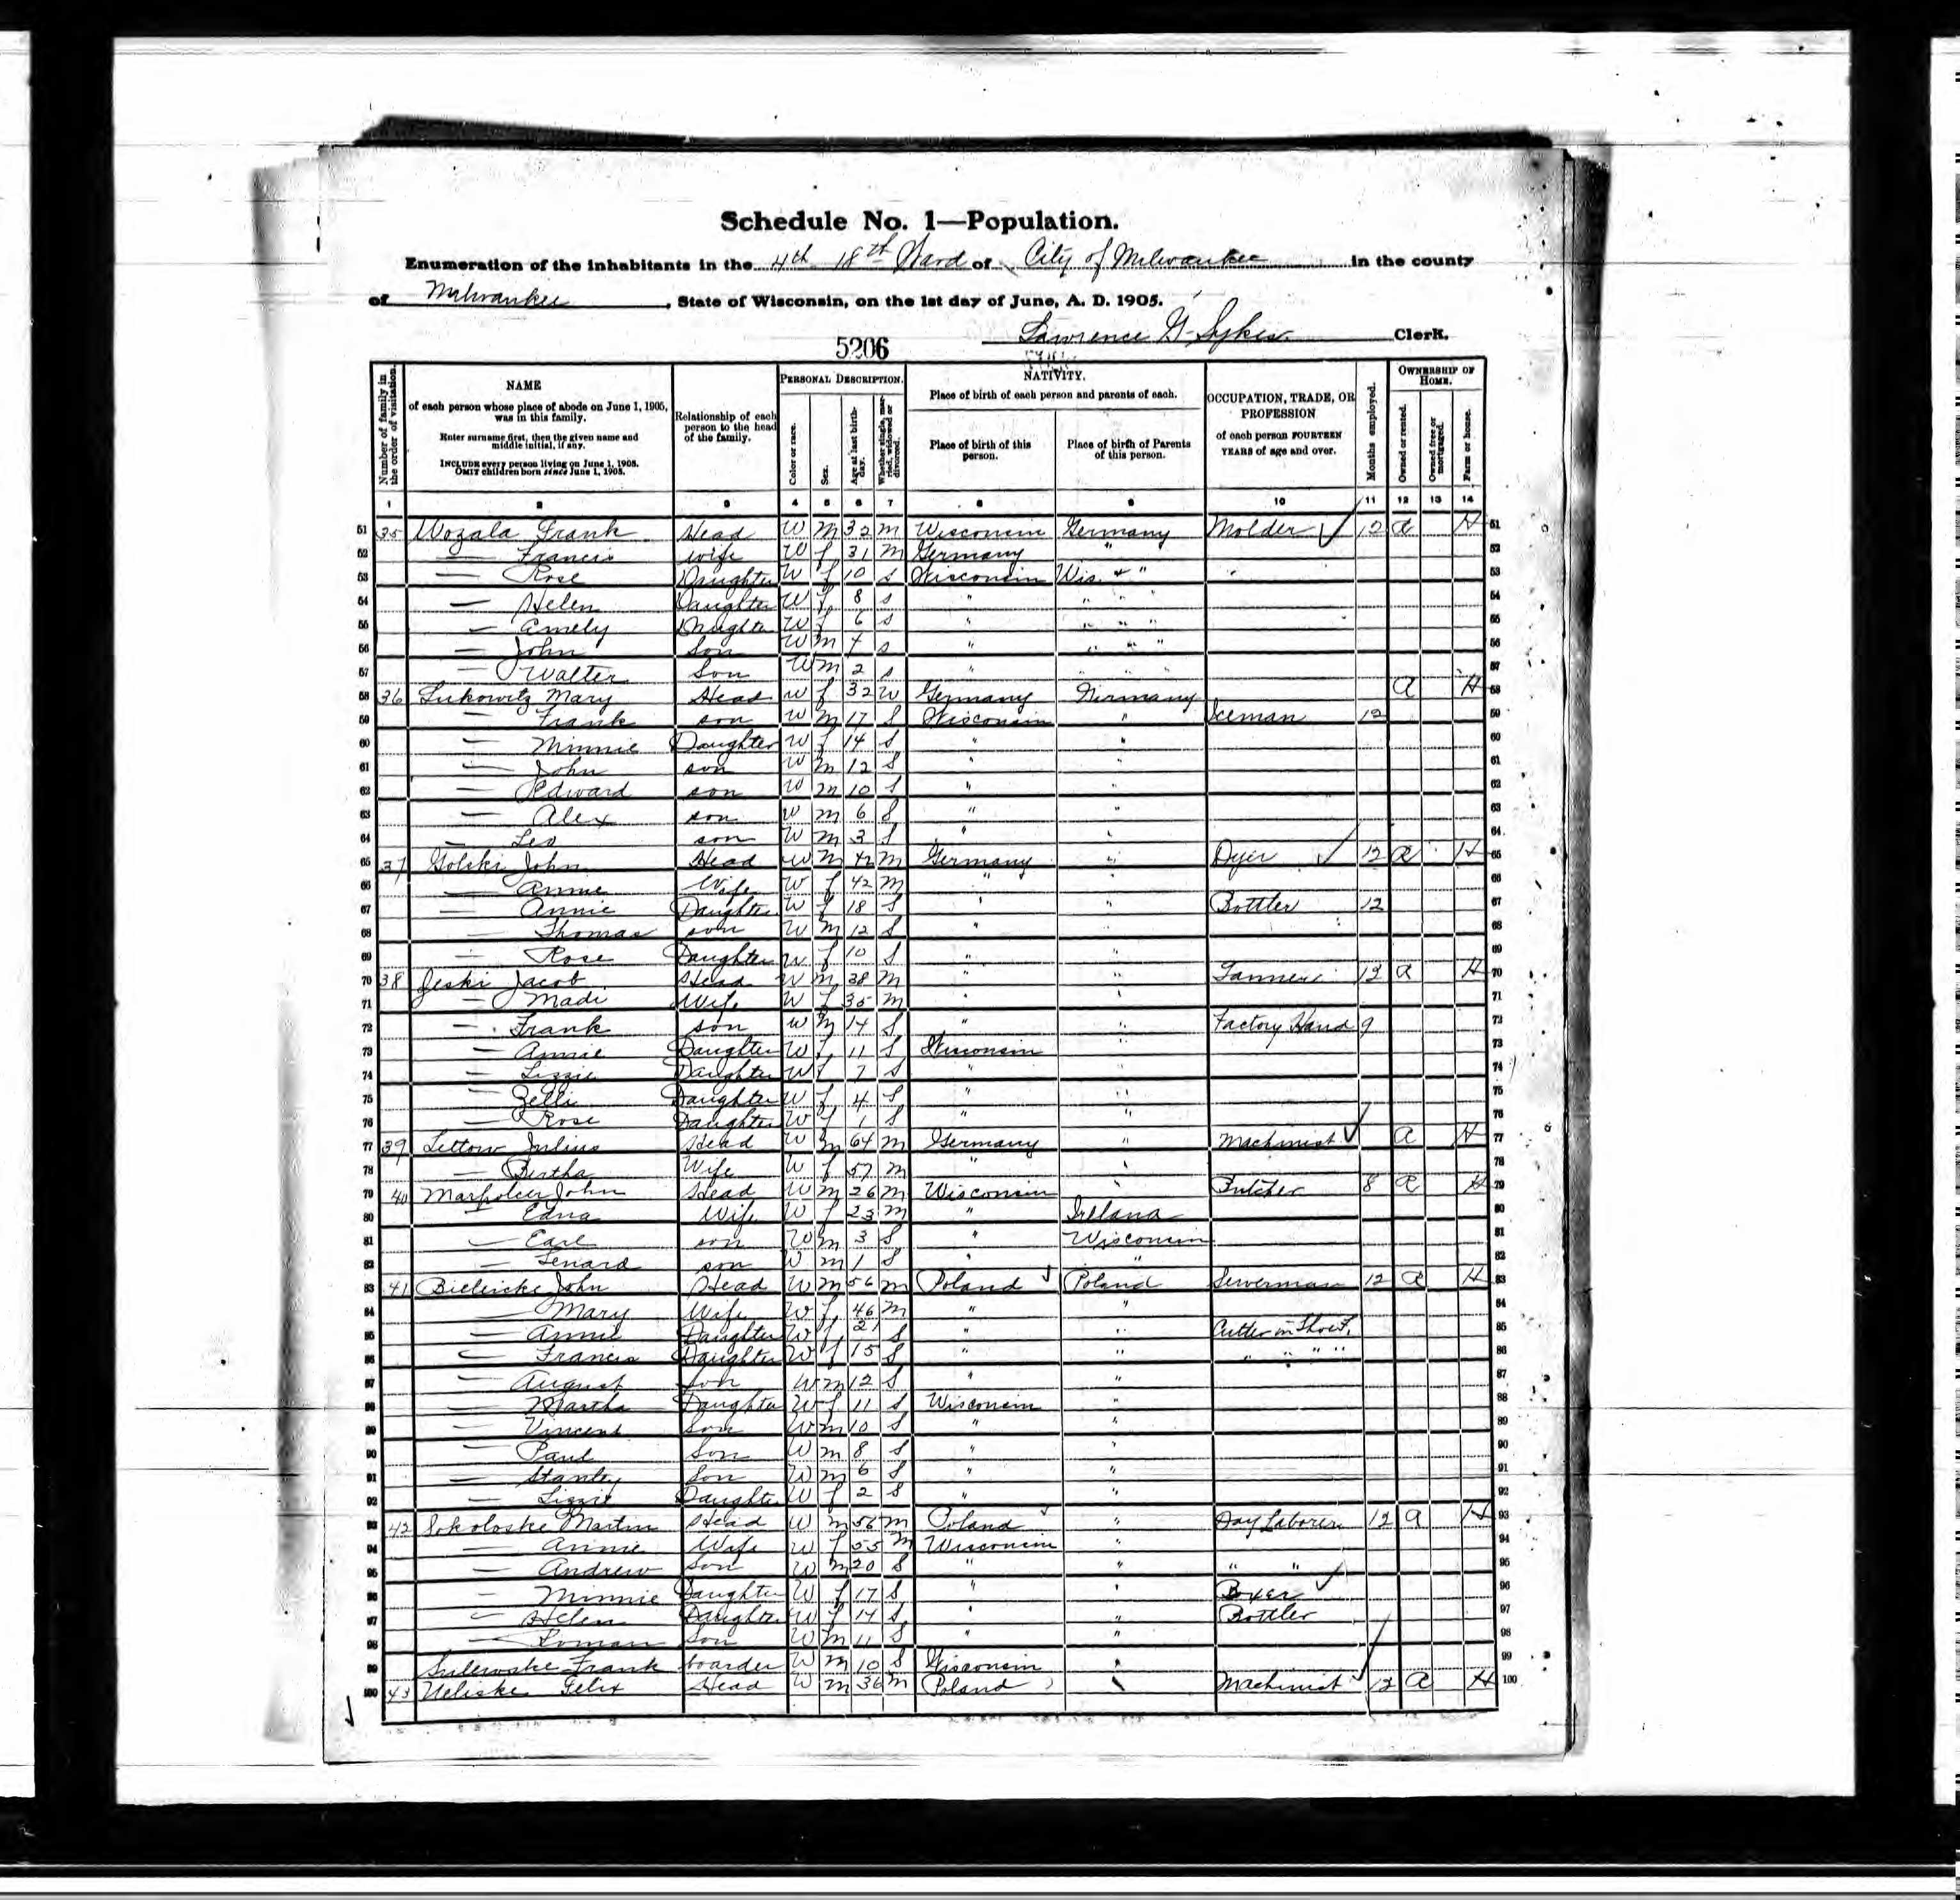 Schedule No. 1—Population.
Enumeration of the inhabitants in the 4th 18th Ward of City of Milwaukee in the county
of Milwaukee, State of Wisconsin, on the 1st day of June, A. D. 1905.
Lawrence G. Sykes. Clerk.
5206
Number of family in the order of visitation.
NAME
of each person whose place of abode on June 1, 1905, was in this family.
Enter surname first, then the given name and middle initial, if any.
INCLUDE every person living on June 1, 1905.
OMIT children born since June 1, 1905.
Relationship of each person to the head of the family.
PERSONAL DESCRIPTION.
Color or race.
Sex.
Age at last birthday.
Whether single, married, widowed or divorced.
NATIVITY.
Place of birth of each person and parents of each.
Place of birth of this person.
Place of birth of Parents of this person.
OCCUPATION, TRADE, OR PROFESSION
of each person FOURTEEN YEARS of age and over.
Months employed.
OWNERSHIP OF HOME.
Owned or rented.
Owned free or mortgaged.
Farm or house.
1 2 3 4 5 6 7 8 9 10 11 12 13 14
51 35 Wozala Frank Head W m 32 m Wisconsin Germany Molder ✓ 12 R H 51
52 — Francis wife W f 31 m Germany " 52
53 — Rose Daughter W f 10 s Wisconsin Wis. + " 53
54 — Helen Daughter W f 8 s " " " " 54
55 — Amely Daughter W f 6 s " " " " 55
56 — John Son W m 4 s " " " " 56
57 — Walter Son W m 2 s " " " " 57
58 36 Lukowitz Mary Head W f 32 W Germany Germany R H 58
59 — Frank son W m 17 S Wisconsin " Iceman 12 59
60 — Minnie Daughter W f 14 S " " 60
61 — John son W m 12 S " " 61
62 — Edward son W m 10 S " " 62
63 — Alex son W m 6 S " " 63
64 — Leo son W m 3 S " " 64
65 37 Golski John Head W m 42 m Germany " Dyer ✓ 12 R H 65
66 — Annie Wife W f 42 m " " 66
67 — Annie Daughter W f 18 S " " Bottler 12 67
68 — Thomas son W m 12 S " " 68
69 — Rose Daughter W f 10 S " " 69
70 38 Jeski Jacob Head W m 38 m " " Tanner 12 R H 70
71 — Madi Wife W f 35 m " " 71
72 — Frank son W m 14 S " " Factory Hand 9 72
73 — Annie Daughter W f 11 S Wisconsin " 73
74 — Lizzie Daughter W f 7 S " " 74
75 — Zelli Daughter W f 4 S " " 75
76 — Rose Daughter W f 1 S " " 76
77 39 Lettow Julius Head W m 64 m Germany " Machinist ✓ R H 77
78 — Bertha Wife W f 57 m " " 78
79 40 John Head W m 26 m Wisconsin " Butcher 8 R H 79
80 — Edna Wife W f 23 m " Ireland 80
81 — Earl son W m 3 S " Wisconsin 81
82 — Lenard son W m 1 S " " 82
83 41 Bielricke John Head W m 56 m Poland ✓ Poland Sewerman 12 R H 83
84 — Mary Wife W f 46 m " " 84
85 — Annie Daughter W f 21 S " " Cutter in Shoe F. 85
86 — Francis Daughter W f 15 S " " " " " " 86
87 — August Son W m 12 S " " 87
88 — Martha Daughter W f 11 S Wisconsin " 88
89 — Vincent Son W m 10 S " " 89
90 — Paul Son W m 8 S " " 90
91 — Stanley Son W m 6 S " " 91
92 — Lizzie Daughter W f 2 S " " 92
93 42 Sokoloske Martin Head W m 56 m Poland ✓ " Day Laborer 12 R H 93
94 — Annie Wife W f 55 m Wisconsin " 94
95 — Andrew Son W m 20 S " " " " 95
96 — Minnie Daughter W f 17 S " " ✓ 96
97 — Helen Daughter W f 14 S " " Bottler 97
98 — Roman Son W m 11 S " " 98
99 Sulewske Frank boarder W m 10 S Wisconsin " 99
100 43 Ueliske Felix Head W m 36 m Poland " Machinist ✓ 12 R H 100